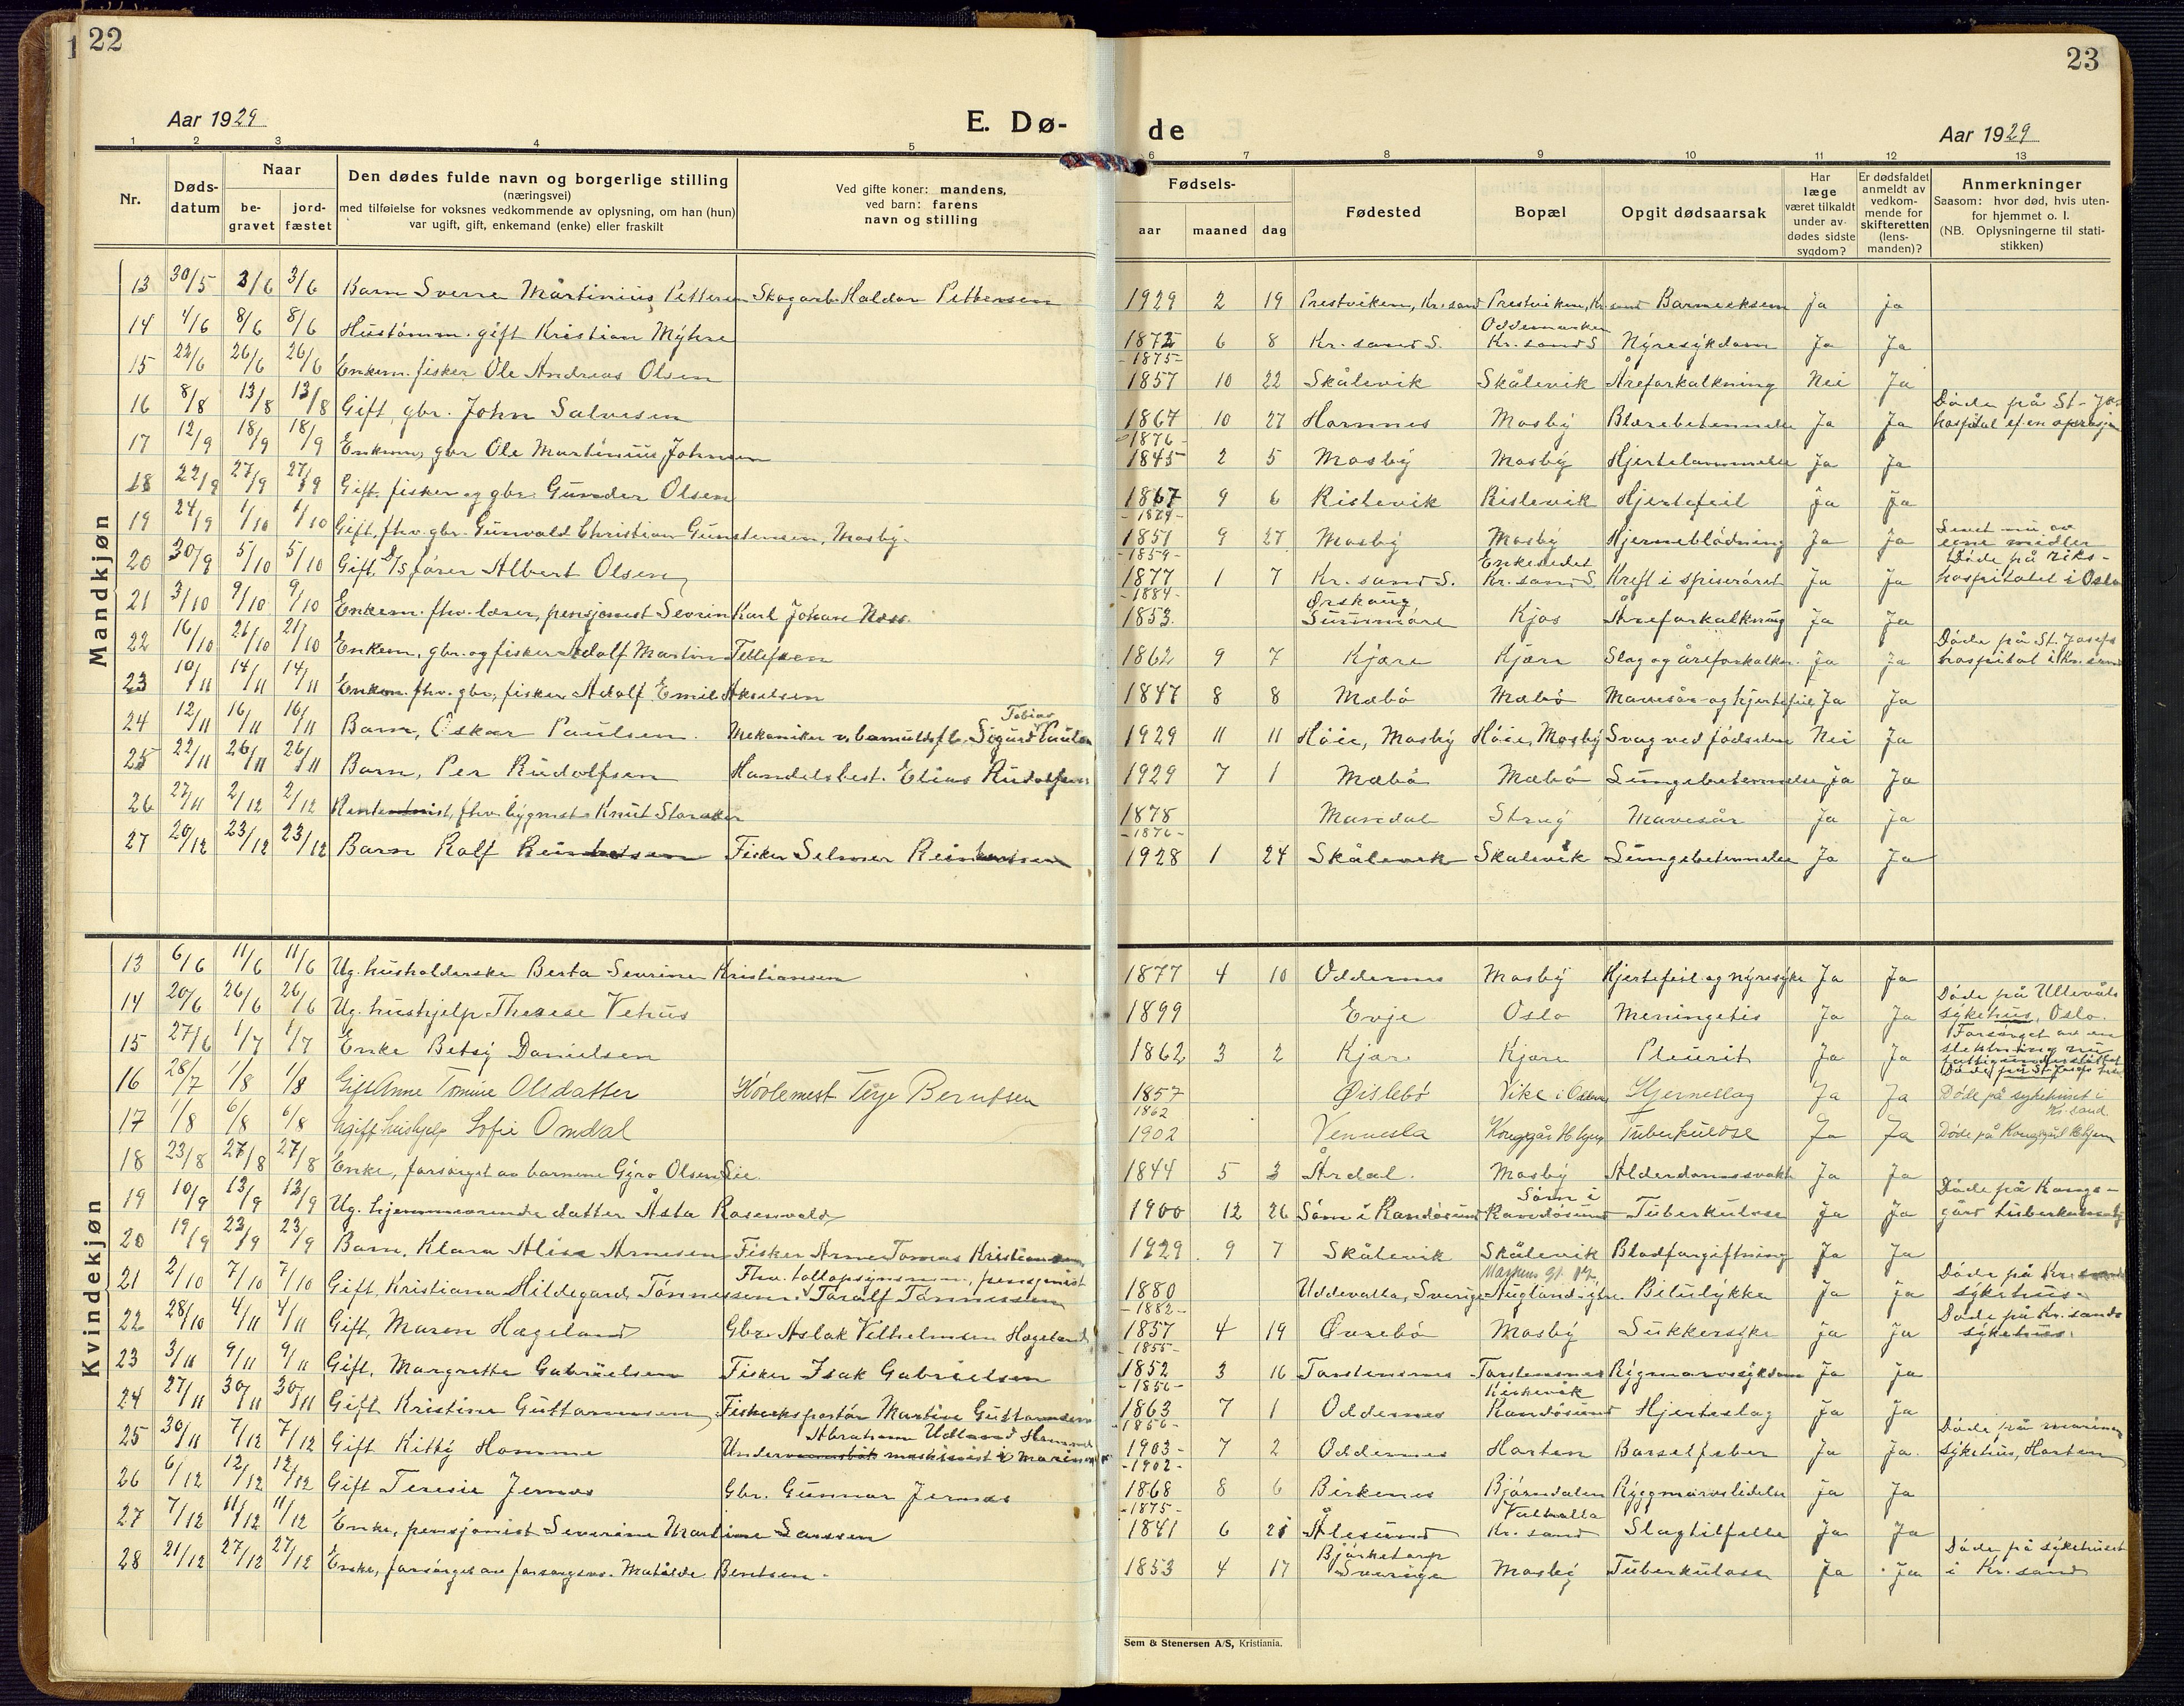 22
Aar 1929
E. Dø-
1 2 3 4 5
Nr.
Døds-
datum
Naar
be-
gravet
jord-
fæstet
Den dødes fulde navn og borgerlige stilling
(næringsvei)
med tilføielse for voksnes vedkommende av oplysning, om han (hun)
var ugift, gift, enkemand (enke) eller fraskilt
Ved gifte koner: mandens,
ved barn: farens
navn og stilling
Mandkjøn
13 30/5 3/6 3/6 Barn Sverre Martinius Pettersen Skogarb. Haldor Pettersen
14 4/6 8/6 8/6 Hustømm. gift Kristian Myhre
15 22/6 26/6 26/6 Enkem. fisker Ole Andreas Olsen
16 8/8 13/8 13/8 Gift, gbr. John Salvesen
17 12/9 18/9 18/9 Enkem, gbr Ole Martinius Johnsen
18 22/9 27/9 27/9 Gift. fisker og gbr. Gunder Olsen
19 24/9 1/10 1/10 Gift, fhv. gbr. Gunvald Christian Gunstensen, Mosby.
20 30/9 5/10 5/10 Gift. D/S fører Albert Olsen
21 3/10 9/10 9/10 Enkem. fhv. lærer, pensjonist Severin Karl Johan Næss.
22 16/10 21/10 21/10 Enkem, gbr. og fisker Adolf Martin Tellefsen
23 10/11 14/11 14/11 Enkem. fhv. gbr, fisker Adolf Emil Akselsen
24 12/11 16/11 16/11 Barn, Oskar Paulsen. Mekaniker v. Sigurd Tobias Paulsen
25 22/11 26/11 26/11 Barn, Per Rudolfsen Handelsbest. Elias Rudolfsen
26 27/11 2/12 2/12 Rentenist, fhv. bygmest. Knut Storaker
27 20/12 23/12 23/12 Barn Rolf Reinhartsen Fisker Selmer Reinhartsen
Kvindekjøn
13 6/6 11/6 11/6 Ug. husholderske Berta Severine Kristiansen
14 20/6 26/6 26/6 Ug. hushjelp Therese Vehus
15 27/6 1/7 1/7 Enke Betsy Danielsen
16 28/7 1/8 1/8 Gift Anne Tomine Olsdatter Hövlemest Terje Berntsen
17 1/8 6/8 6/8 Ugift hushjelp Sofie Omdal
18 23/8 27/8 27/8 Enke, forsørget av barnene Gyro Olsen Lie.
19 10/9 13/9 13/9 Ug. hjemmeværende datter Åsta Rosenvold
20 19/9 23/9 23/9 Barn, Klara Alise Arnesen Fisker Arne Tomas Kristiansen
21 2/10 7/10 7/10 Gift, Kristiana Hildegard Tønnessen. Fhv. tollopsynsm., pensjonist Toralf Tønnessen
22 28/10 4/11 4/11 Gift, Maren Hægeland Gbr. Aslak Vilhelmsen Hægeland
23 3/11 9/11 9/11 Gift, Margrethe Gabrielsen Fisker Isak Gabrielsen
24 27/11 30/11 30/11 Gift Kristine Guttormsen, Fiskeeksportør Martin Guttormsen
25 30/11 7/12 7/12 Gift Kitty Homme Abraham Udland Homme maskinist i Marinen
26 6/12 12/12 12/12 Gift Teresie Jernæs Gbr. Gunnar Jernæs
27 7/12 11/12 11/12 Enke, pensjonist Severine Martine Larssen
28 21/12 27/12 27/12 Enke, forsørget av forsorgsv. Matilde Bentsen.
23
de
Aar 1929
6 7 8 9 10 11 12 13
Fødsels-
aar maaned dag
Fødested
Bopæl
Opgit dødsaarsak
Har
læge
været tilkaldt
under av-
dødes sidste
sygdom?
Er dødsfaldet
anmeldt av
vedkom-
mende for
skifteretten
(lens-
manden)?
Anmerkninger
Saasom: hvor død, hvis uten-
for hjemmet o. l.
(NB. Oplysningerne til stati-
stikken)
1929 2 19 Prestviken, Kr.sand Prestviken, Kr.sand Barneeksem ja ja
1872 6 8 Kr. sand S. Oddemarken Kr. sand S Nyresykdom Ja Ja
-1875-
1857 10 22 Skålevik Skålevik Åreforkalkning Nei Ja
1867 10 27 Hornnes Mosby Blærebetennelse Ja Ja Døde på St. Jos. hospital ef. en operasjon
-1876-
1845 2 5 Mosby Mosby Hjertelammelse Ja Ja
1867 9 6 Ristevik Ristevik Hjertefeil Ja Ja
1851 9 27 Mosby Mosby Hjerneblødning Ja Ja Levet nu av egne midler
-1859-
1877 1 7 Kr. sand S. Enkesedet Kr. sand S Kreft i spiserøret Ja Ja Døde på riks- hospitalet i Oslo
-1884-
1853. Ørskaug Sunnmøre Kjos Åreforkalkning Ja Ja
1862 9 7 Kjære Kjære Slag og åreforkalkn. Ja Ja Døde på St. Josefs hospital i Kr. sand
1847 8 8 Mæbø Mæbø Mavesår og hjertefeil Ja Ja
1929 11 11 Høie, Mosby Høie, Mosby Svag ved fødselen Nei Ja
1929 7 1 Mæbø Mæbø Lungebetennelse Ja Ja
1878 Mandal Strøy Mavesår Ja Ja
-1876-
1928 1 24 Skålevik Skålevik Lungebetennelse Ja Ja
1877 4 10 Oddernes Mosby Hjertefeil og nyresyke Ja Ja
1899 Evje Oslo Meningetis Ja Ja Døde på Ullevåls sykehus, Oslo.
1862 3 2 Kjære Kjære Pleurit Ja Ja Forsørget av en
1857 Øislebø Vike i Oddern Hjerneslag Ja Ja Døde på sykehuset i Kr. sand
1862
1902 Vennesla Kongsgård Tuberkulose Ja Ja Døde på Kongsgård
1844 5 3 Årdal. Mosby Alderdomssvakh Ja Ja
1900 12 26 Søm i Randøsund Søm i Randøsund Tuberkulose Ja Ja Døde på Kongs- gård
1929. 9 7 Skålevik Skålevik Blodforgiftning Ja Ja
1880 Uddevalla, Sverige Bilulykke Ja Ja Døde på Kr.sands sykehus.
-1882-
1857 4 19 Øvrebø Mosby Sukkersyke Ja Ja Døde på Kr. sands sykehus.
-1855-
1852 3 16 Torstensnes Torstensnes Rygmarvssykdom Ja Ja
-1856-
1863 7 1 Oddernes Randøsund Hjerteslag Ja Ja
-1856-
1903- 7 2 Oddernes Horten Barselfeber Ja Ja. Døde på marinens sykehus, Horten
-1902-
1868 8 6 Birkenes Bjørndalen Ryggmarvslidelse Ja Ja
-1875-
1841 6 25 Ålesund Valhalla Kr. sand Slagtilfelle Ja Ja
1853 4 17 Bjørketorp Sverige Mosby Tuberkulose Ja Ja Døde på sykehuset i Kr. sand
Sem & Stenersen A/S, Kristiania.